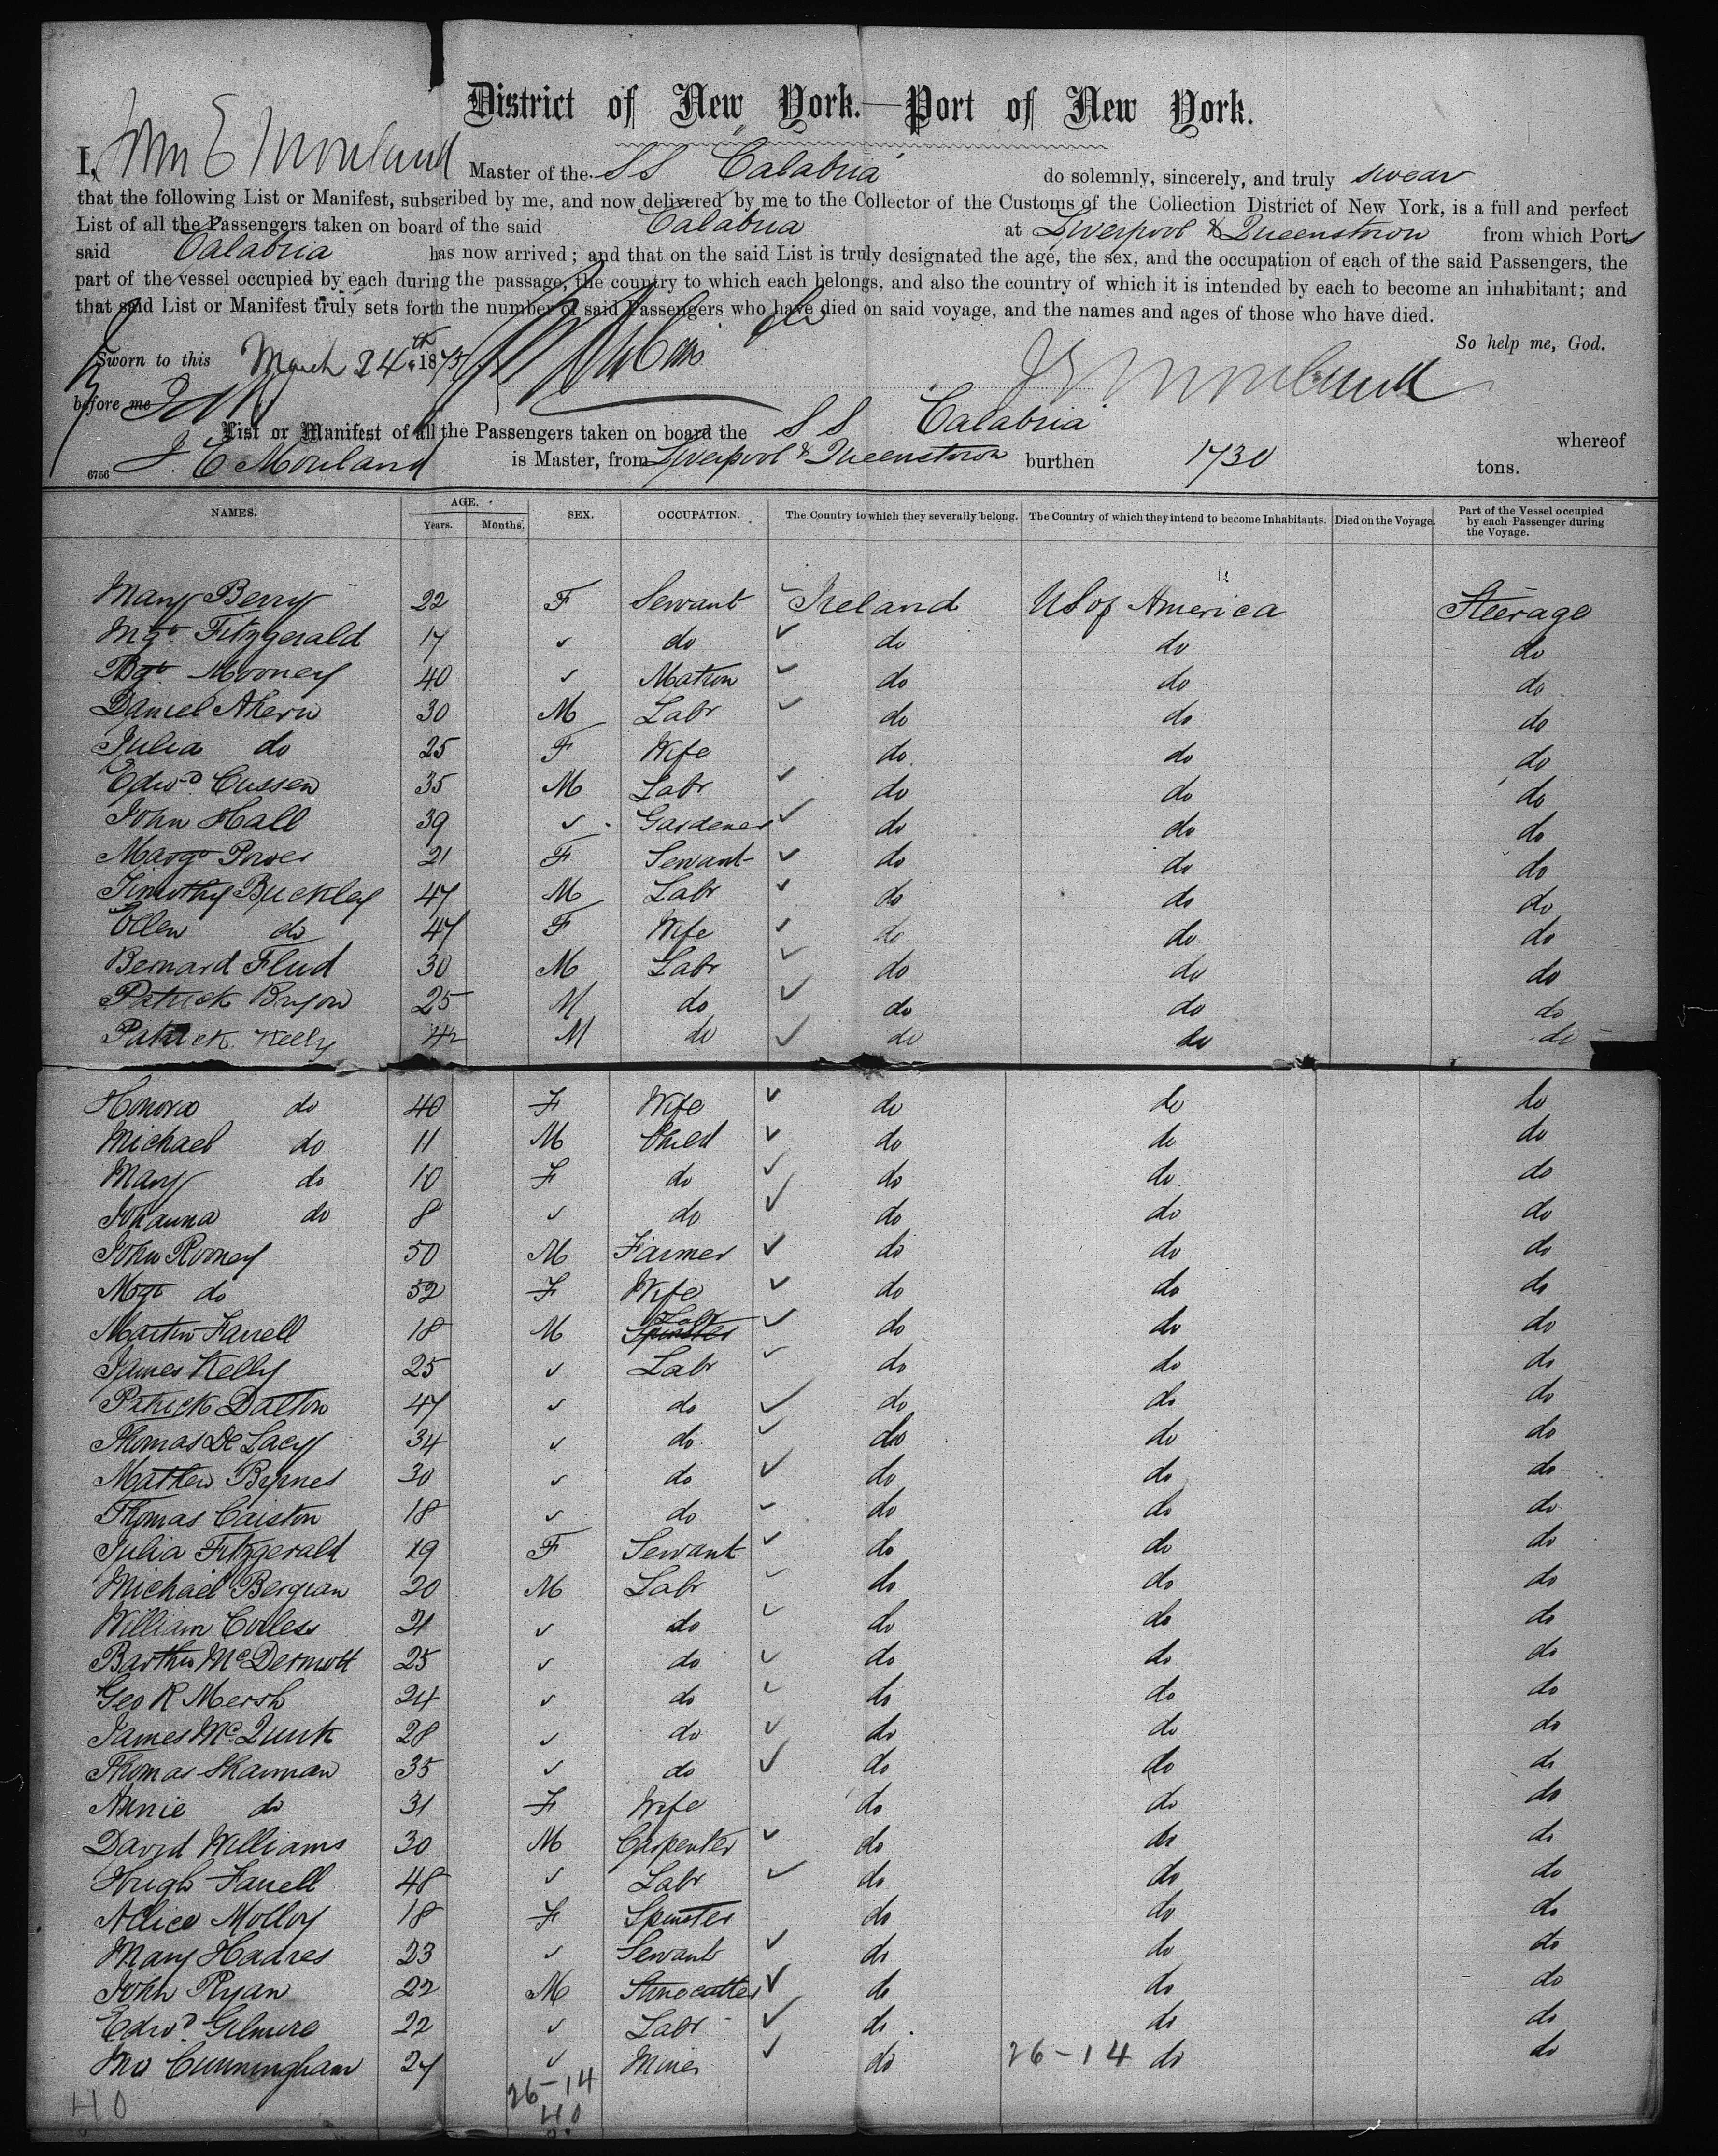 District of New York.—Port of New York.
I, John E Mouland Master of the SS Calabria do solemnly, sincerely, and truly swear
that the following List or Manifest, subscribed by me, and now delivered by me to the Collector of the Customs of the Collection District of New York, is a full and perfect
List of all the Passengers taken on board of the said Calabria at Liverpool & Queenstown from which Ports
said Calabria has now arrived; and that on the said List is truly designated the age, the sex, and the occupation of each of the said Passengers, the
part of the vessel occupied by each during the passage, the country to which each belongs, and also the country of which it is intended by each to become an inhabitant; and
that said List or Manifest truly sets forth the number of said Passengers who have died on said voyage, and the names and ages of those who have died.
So help me, God.
Sworn to this March 24th 1873
before me J E Mouland
List or Manifest of all the Passengers taken on board the SS Calabria whereof
6756 J. E Mouland is Master, from Liverpool & Queenstown burthen 1730 tons.
NAMES. AGE. Years. Months. SEX. OCCUPATION. The Country to which they severally belong. The Country of which they intend to become Inhabitants. Died on the Voyage. Part of the Vessel occupied by each Passenger during the Voyage.
Mary Berry 22 F Servant Ireland US of America Steerage
Mgt Fitzgerald 17 " do do do do
Bgt Mooney 40 " Matron do do do
Daniel Ahern 30 M Labr do do do
Julia do 25 F Wife do do do
Edwd Cussen 35 M Labr do do do
John Hall 39 " Gardener do do do
Margt Power 21 F Servant do do do
Timothy Buckley 47 M Labr do do do
Ellen do 47 F Wife do do do
Bernard Flud 30 M Labr do do do
Patrick Bryon 25 M do do do do
Patrick Kelly 42 M do do do do
Honora do 40 F Wife do do do
Michael do 11 M Child do do do
Mary do 10 F do do do do
Johanna do 8 " do do do do
John Rooney 50 M Farmer do do do
Mgt do 52 F Wife do do do
Martin Farrell 18 M Labr do do do
James Kelly 25 " Labr do do do
Patrick Dalton 47 " do do do do
Thomas De Lacy 34 " do do do do
Mathew Byrnes 30 " do do do do
Thomas Caiston 18 " do do do do
Julia Fitzgerald 19 F Servant do do do
Michael Bergian 20 M Labr do do do
William Corless 21 " do do do do
Barthw McDermott 25 " do do do do
Geo R Mersh 24 " do do do do
James McQuirk 28 " do do do do
Thomas Sharman 35 " do do do do
Annie do 31 F Wife do do do
David Williams 30 M Carpenter do do do
Hugh Farrell 48 " Labr do do do
Alice Molloy 18 F Spinster do do do
Mary Hadres 23 " Servant do do do
John Ryan 22 M Stonecutter do do do
Edwd Gilmere 22 " Labr do do do
Jno Cunningham 27 " Miner do 26-14 do do
26-14
40 40